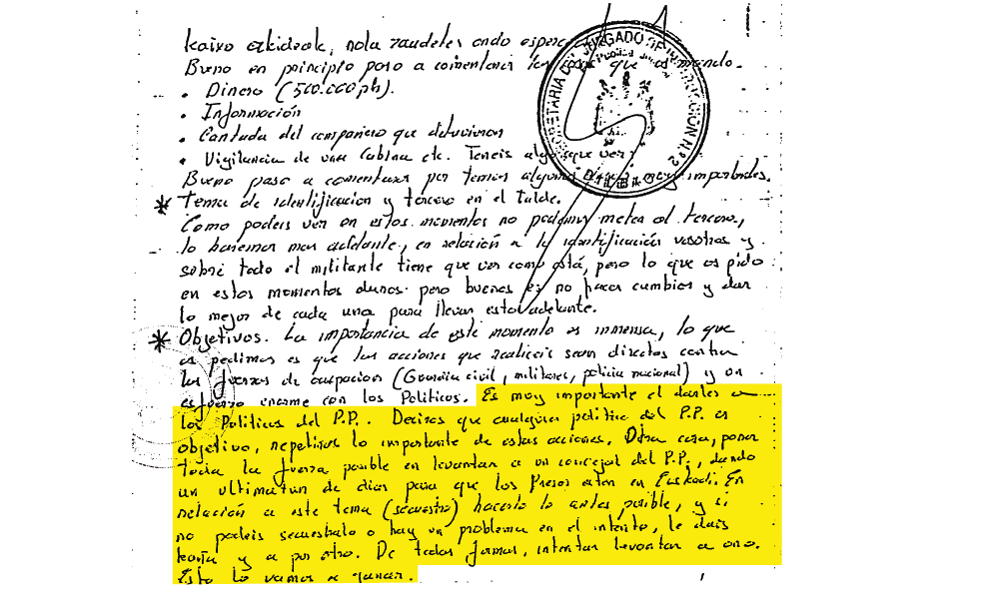 kaixo ekideok, nola zaudete? ondo espero
Bueno en principio paso a comentaros las cosas que os mando.
• Dinero (500.000 pts).
• Información
• Cantada del compañero que detuvieron
• Vigilancia de una cabina etc. Teneis algo que ver.
Bueno paso a comentaros por temas algunas cosas muy importantes.
* Tema de identificacion y tercero en el Talde.
Como podeis ver en estos momentos no podemos meter al tercero,
lo haremos mas adelante, en relación a la identificación vosotros y
sobre todo el militante tiene que ver como está, pero lo que os pido
en estos momentos duros pero buenos es no hacer cambios y dar
lo mejor de cada uno para llevar esto adelante.
* Objetivos. La importancia de este momento es inmensa, lo que
os pedimos es que las acciones que realiceis sean directas contra
las fuerzas de ocupacion (Guardia civil, militares, policia nacional) y un
esfuerzo enorme con los Politicos. Es muy importante el darles a
los Politicos del P.P. Deciros que cualquier politico del P.P. es
objetivo, repetiros lo importante de estas acciones. Otra cosa, poner
toda la fuerza posible en levantar a un concejal del P.P., dando
un ultimatun de dias para que los Presos esten en Euskadi. En
relación a este tema (secuestro) hacerlo lo antes posible, y si
no podeis secuestralo o hay un problema en el intento, le dais
kaña y a por otro. De todas formas, intentar levantar a uno.
Esto lo vamos a ganar.
SECRETARIA DEL JUZGADO DE INSTRUCCION N.º 2
BILBAO